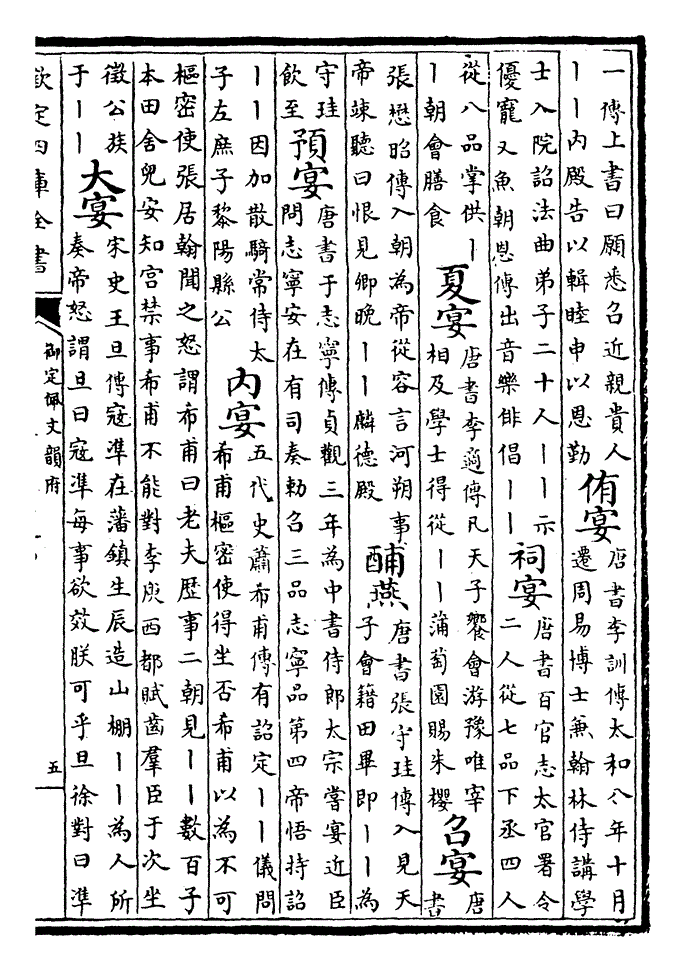 一傳上書曰願悉召近親貴人
丨丨内殿告以輯睦申以恩勤
侑宴
唐書李訓傳太和八年十月
遷周易博士兼翰林侍講學
士入院詔法曲弟子二十人丨丨示
優寵又魚朝恩傳出音樂俳倡丨丨
祠宴
唐書百官志太官署令
二人從七品下丞四人
從八品掌供丨
丨朝會膳食
夏宴
唐書李適傳凡天子饗會游豫唯宰
相及學士得從丨丨蒲萄園賜朱櫻
召宴
唐
書
張懋昭傳入朝為帝從容言河朔事
帝竦聽曰恨見卿晚丨丨麟德殿
酺燕
唐書張守珪傳入見天
子會籍田畢即丨丨為
守珪
飲至
預宴
唐書于志寧傳貞觀三年為中書侍郎太宗嘗宴近臣
問志寧安在有司奏勅召三品志寧品第四帝悟持詔
丨丨因加散騎常侍太
子左庶子黎陽縣公
内宴
五代史蕭希甫傳有詔定丨丨儀問
希甫樞密使得坐否希甫以為不可
樞密使張居翰聞之怒謂希甫曰老夫歴事二朝見丨丨數百子
本田舍兒安知宫禁事希甫不能對李庾西都賦齒羣臣于次坐
徵公族
于丨丨
大宴
宋史王旦傳寇凖在藩鎮生辰造山棚丨丨為人所
奏帝怒謂旦曰寇凖每事欲效朕可乎旦徐對曰凖
欽定四庫全書
御定佩文韻府
五